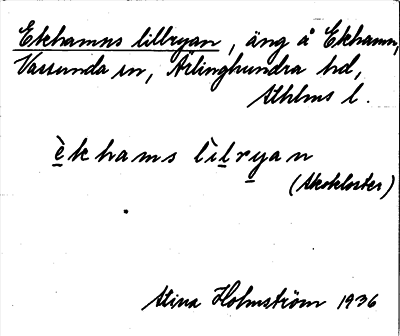 Ekhamns lillryan, äng å Ekhamn,
Vassunda sn, Ärlinghundra hd,
Sthlms l.
èkhams lìlryan
(Skokloster)
Stina Holmström 1936